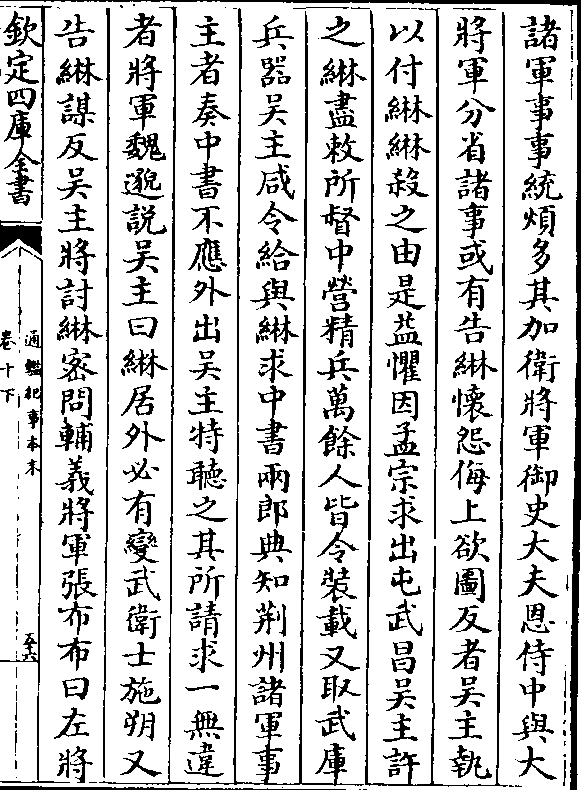 諸軍事事統煩多其加衛將軍御史大夫恩侍中與大
將軍分省諸事或有告綝懷怨侮上欲圖反者吳主執
以付綝綝殺之由是益懼因孟宗求出屯武昌吳主許
之綝盡敕所督中營精兵萬餘人皆令裝載又取武庫
兵器吳主咸令給與綝求中書兩郎典知荆州諸軍事
主者奏中書不應外出吳主特聽之其所請求一無違
者將軍魏邈説吳主曰綝居外必有變武衛士施朔又
告綝謀反吳主將討綝密問輔義將軍張布布曰左將
欽定四庫全書
通鑑紀事本末
卷十下
五六